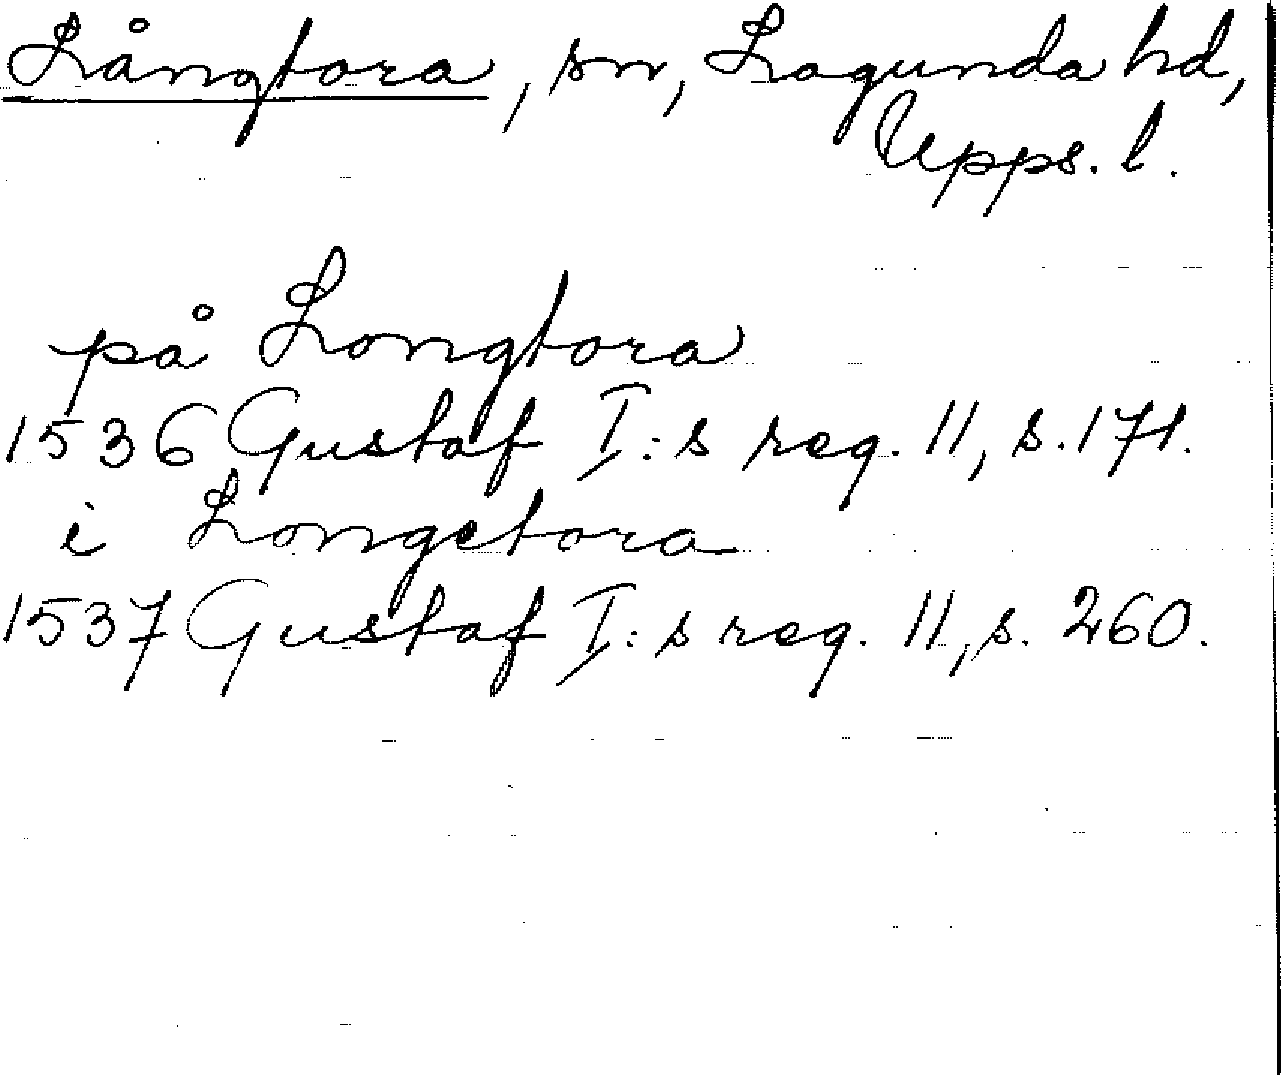 Långtora, sn, Lagunda hd,
Upps. l.
på Longtora
1536 Gustaf I:s reg. 11, s. 171.
i Longetora
1537 Gustaf I:s reg. 11, s. 260.